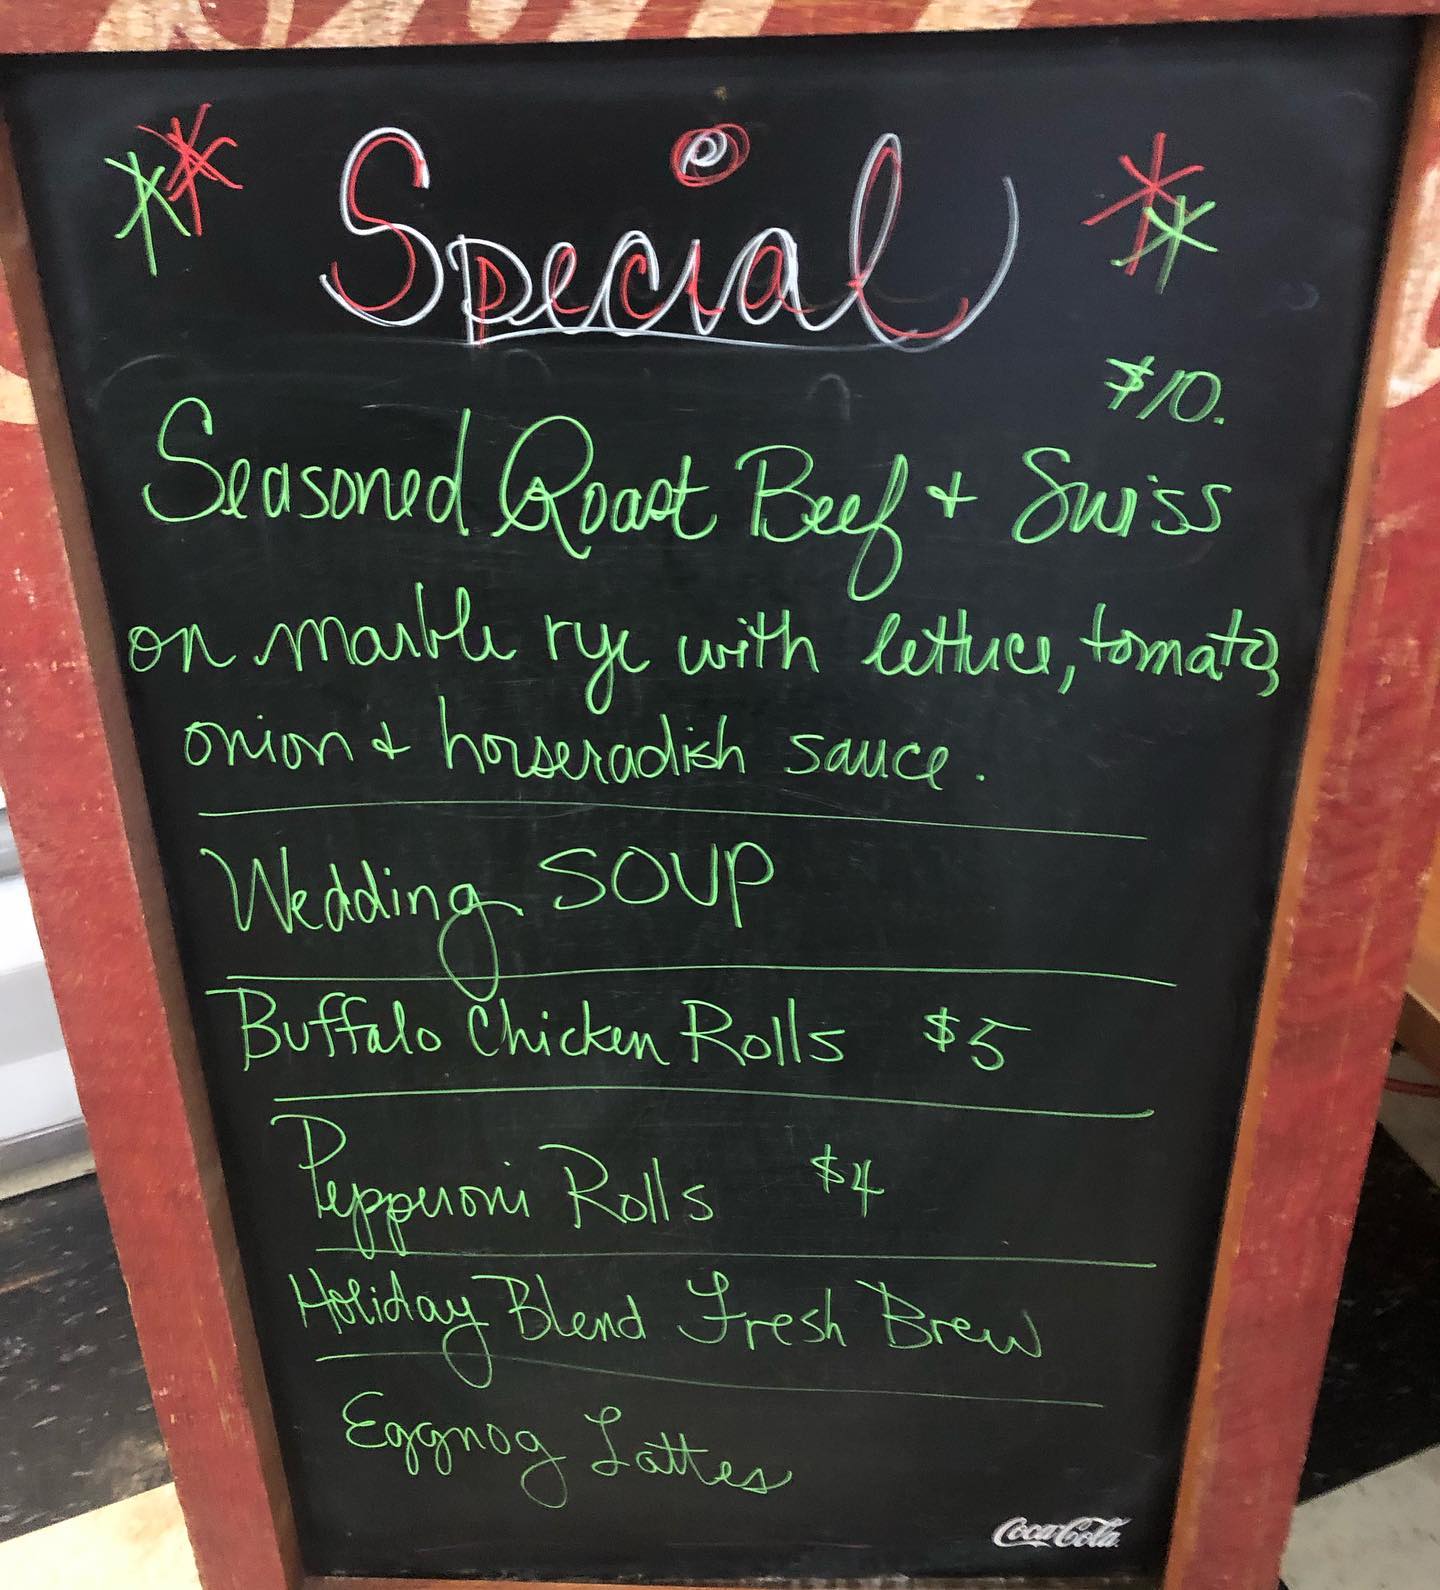 Special
$10.
Seasoned Roast Beef + Swiss
on marble rye with lettuce, tomato,
onion + horseradish sauce.
Wedding SOUP
Buffalo Chicken Rolls $5
Pepperoni Rolls $4
Holiday Blend Fresh Brew
Eggnog Lattes
Coca-Cola